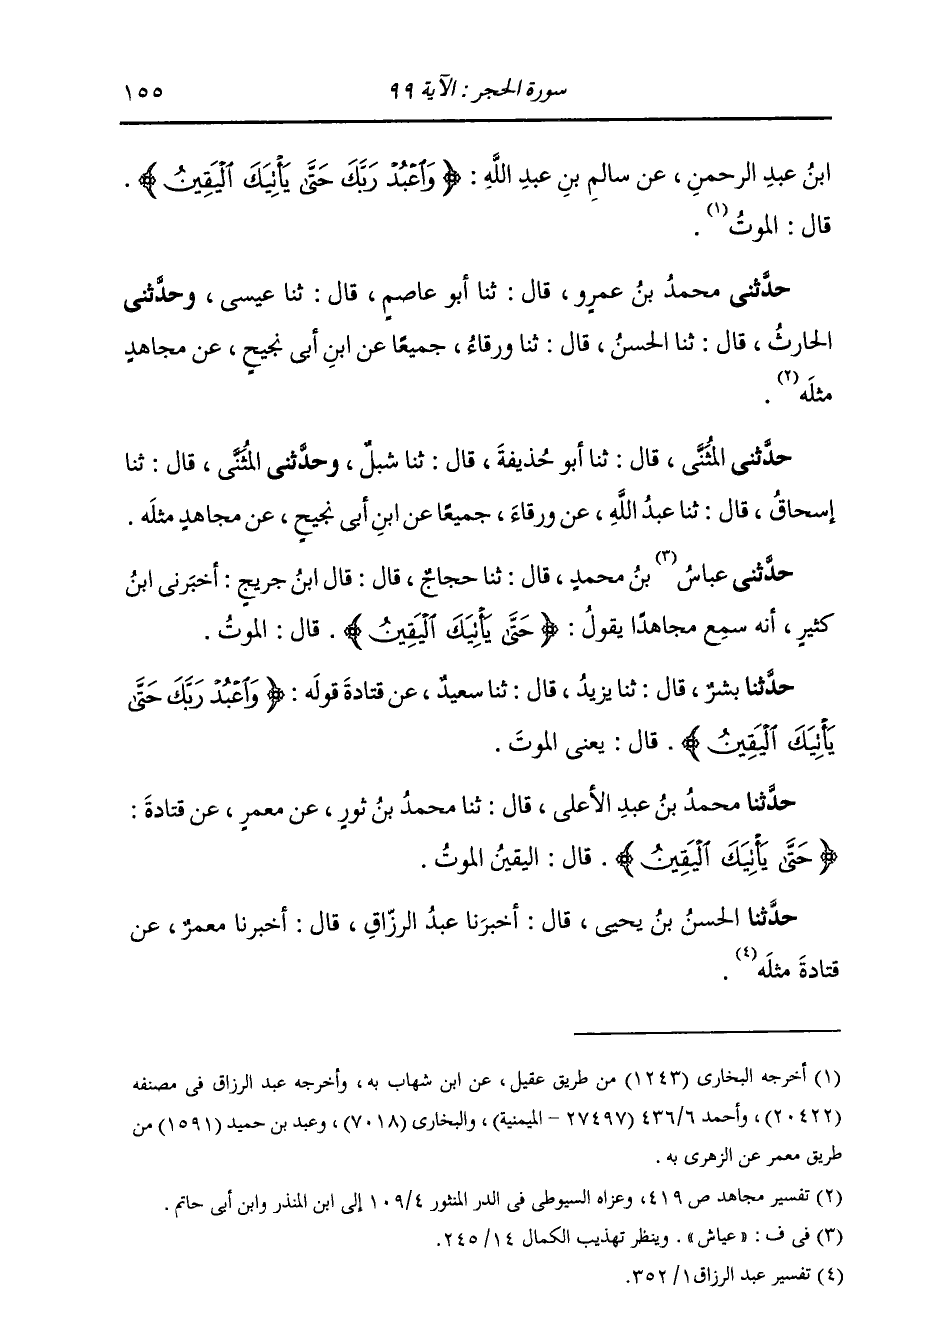 سورة الحجر : الآية ٩٩
١٥٥
ابنُ عبدِ الرحمنِ ، عن سالمِ بنِ عبدِ اللَّهِ : ﴿ وَٱعْبُدْ رَبَّكَ حَتَّىٰ يَأْنِيَكَ ٱلْيَقِينُ ﴾ .
قال : الموتُ(١) .
حدَّثنى محمدُ بنُ عمرٍو ، قال : ثنا أبو عاصمٍ ، قال : ثنا عيسى ، وحدَّثنى
الحارثُ ، قال : ثنا الحسنُ ، قال : ثنا ورقاءُ ، جميعًا عن ابنِ أبى نجيحٍ ، عن مجاهدٍ
مثلَه(٢) .
حدَّثنى المُثَنَّى ، قال : ثنا أبو حُذيفةَ ، قال : ثنا شبلٌ ، وحدَّثنى المُثَنَّى ، قال : ثنا
إسحاقُ ، قال : ثنا عبدُ اللَّهِ ، عن ورقاءَ ، جميعًا عن ابنِ أبى نجيحٍ ، عن مجاهدٍ مثلَه .
حدَّثنى عباسُ(٣) بنُ محمدٍ ، قال : ثنا حجاجٌ ، قال : قال ابنُ جريجٍ : أخبَرنى ابنُ
كثيرٍ ، أنه سمِع مجاهدًا يقولُ : ﴿ حَتَّىٰ يَأْنِيَكَ ٱلْيَقِينُ ﴾ . قال : الموتُ .
حدَّثنا بشرٌ ، قال : ثنا يزيدُ ، قال : ثنا سعيدٌ ، عن قتادةَ قولَه : ﴿ وَٱعْبُدْ رَبَّكَ حَتَّىٰ
يَأْنِيَكَ ٱلْيَقِينُ ﴾ . قال : يعنى الموتَ .
حدَّثنا محمدُ بنُ عبدِ الأعلى ، قال : ثنا محمدُ بنُ ثورٍ ، عن معمرٍ ، عن قتادةَ :
﴿ حَتَّىٰ يَأْنِيَكَ ٱلْيَقِينُ ﴾ . قال : اليقينُ الموتُ .
حدَّثنا الحسنُ بنُ يحيى ، قال : أخبرَنا عبدُ الرزّاقِ ، قال : أخبرنا معمرٌ ، عن
قتادةَ مثلَه(٤) .
(١) أخرجه البخارى (١٢٤٣) من طريق عقيل ، عن ابن شهاب به ، وأخرجه عبد الرزاق فى مصنفه
(٢٠٤٢٢) ، وأحمد ٤٣٦/٦ (٢٧٤٩٧ - الميمنية) ، والبخارى (٧٠١٨) ، وعبد بن حميد (١٥٩١) من
طريق معمر عن الزهرى به .
(٢) تفسير مجاهد ص ٤١٩، وعزاه السيوطى فى الدر المنثور ١٠٩/٤ إلى ابن المنذر وابن أبى حاتم .
(٣) فى ف : «عياش» . وينظر تهذيب الكمال ١٤/ ٢٤٥.
(٤) تفسير عبد الرزاق ١/ ٣٥٢.